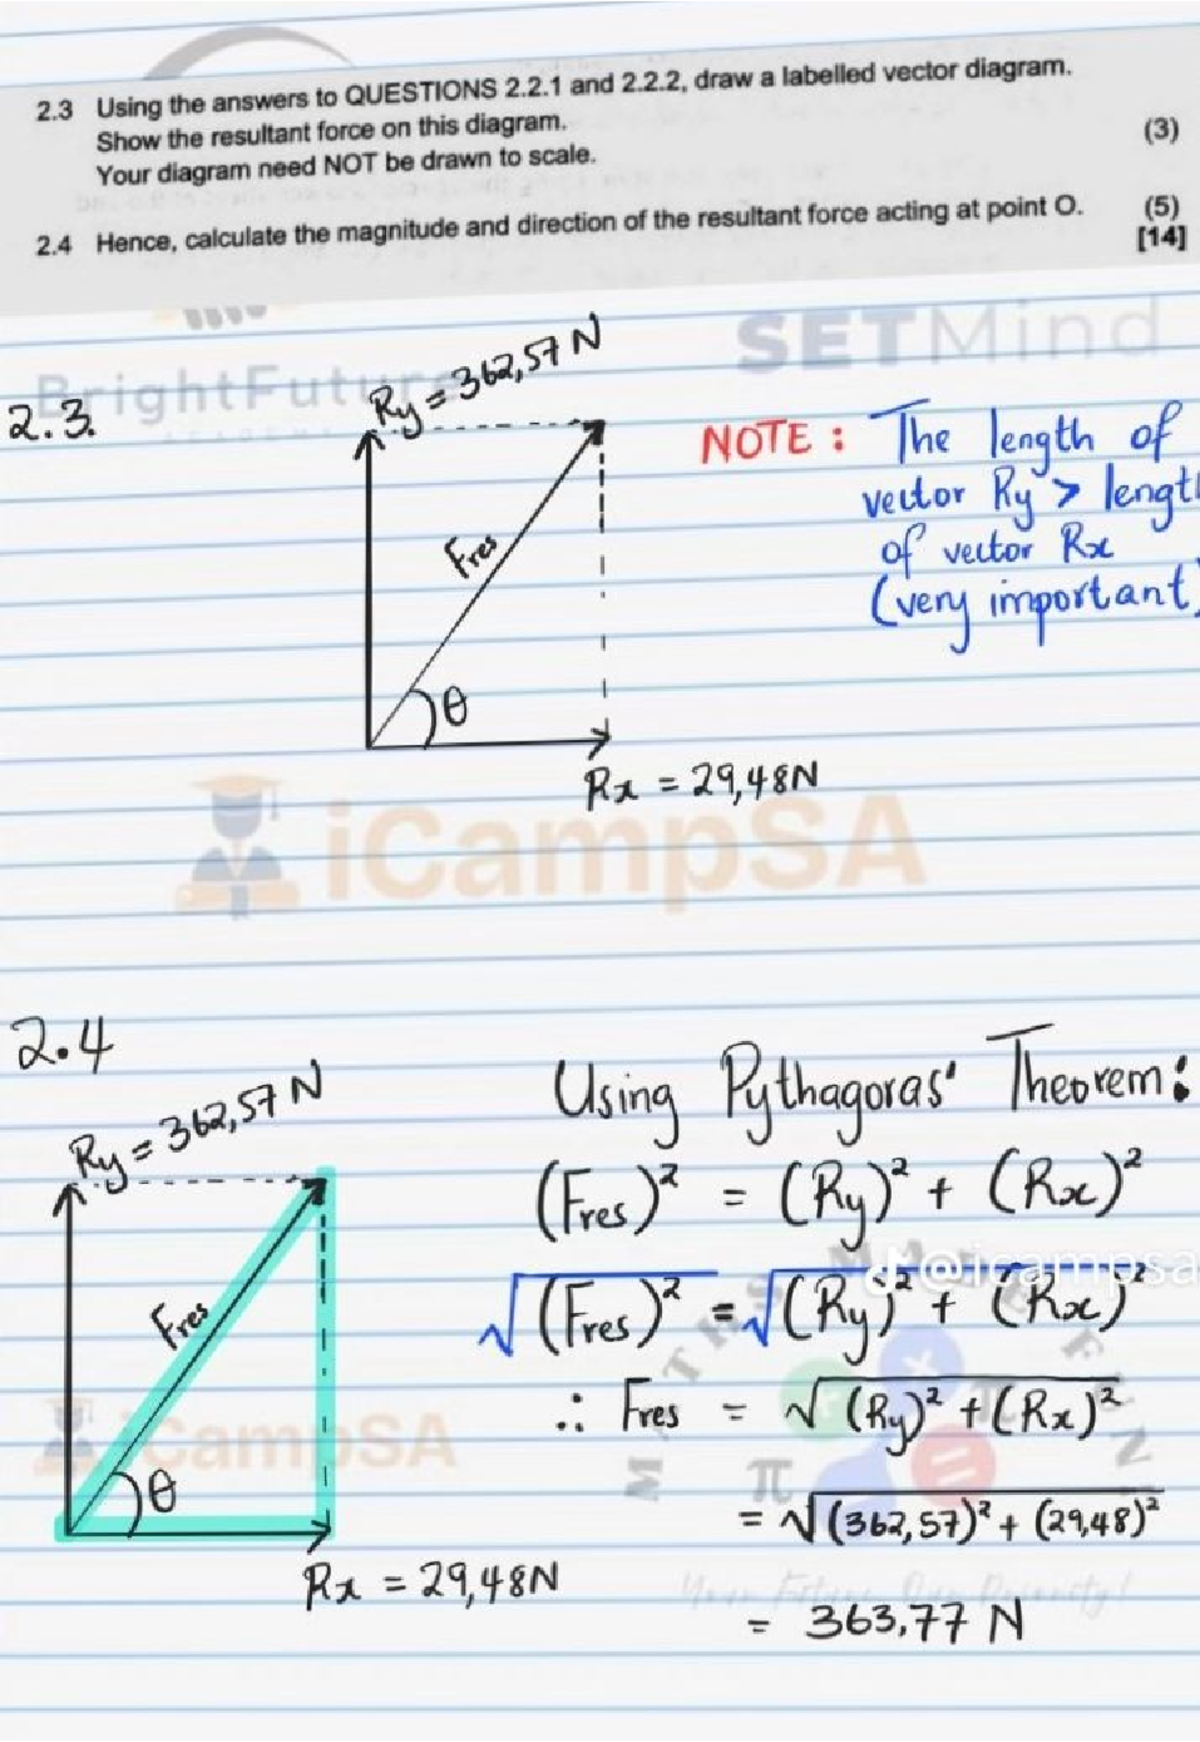 2.3 Using the answers to QUESTIONS 2.2.1 and 2.2.2, draw a labelled vector diagram.
Show the resultant force on this diagram.
Your diagram need NOT be drawn to scale. (3)
2.4 Hence, calculate the magnitude and direction of the resultant force acting at point O. (5)
[14]
SETMind
BrightFutur
2.3.
Ry = 362,57 N
NOTE : The length of
vector Ry > lengt
of vector Rx
(very important)
Fres
θ
Rx = 29,48N
iCampSA
2.4
Ry = 362,57 N
Using Pythagoras' Theorem:
(Fres)² = (Ry)² + (Rx)²
@icampsa
√(Fres)² = √(Ry)² + (Rx)²
Fres
∴ Fres = √(Ry)² + (Rx)²
iCampSA
θ
= √(362,57)² + (29,48)²
Rx = 29,48N
Your Future, Our Priority!
= 363,77 N